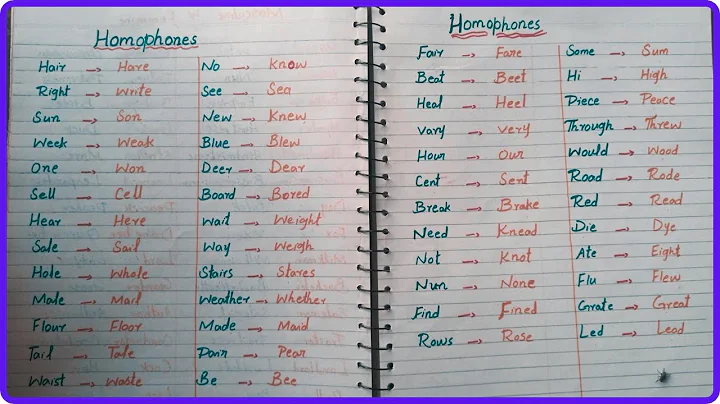 Homophones
Hair → Hare
Right → Write
Sun → Son
Week → Weak
One → Won
Sell → Cell
Hear → Here
Sale → Sail
Hole → Whole
Male → Mail
Flour → Floor
Tail → Tale
Waist → Waste
No → Know
See → Sea
New → Knew
Blue → Blew
Deer → Dear
Board → Bored
Wait → Weight
Way → Weigh
Stairs → Stares
Weather → Whether
Made → Maid
Pair → Pear
Be → Bee
Homophones
Fair → Fare
Beat → Beet
Heal → Heel
Vary → very
Hour → Our
Cent → Sent
Break → Brake
Need → Knead
Not → Knot
Nun → None
Find → Fined
Rows → Rose
Some → Sum
Hi → High
Piece → Peace
Through → Threw
Would → Wood
Road → Rode
Red → Read
Die → Dye
Ate → Eight
Flu → Flew
Grate → Great
Led → Lead